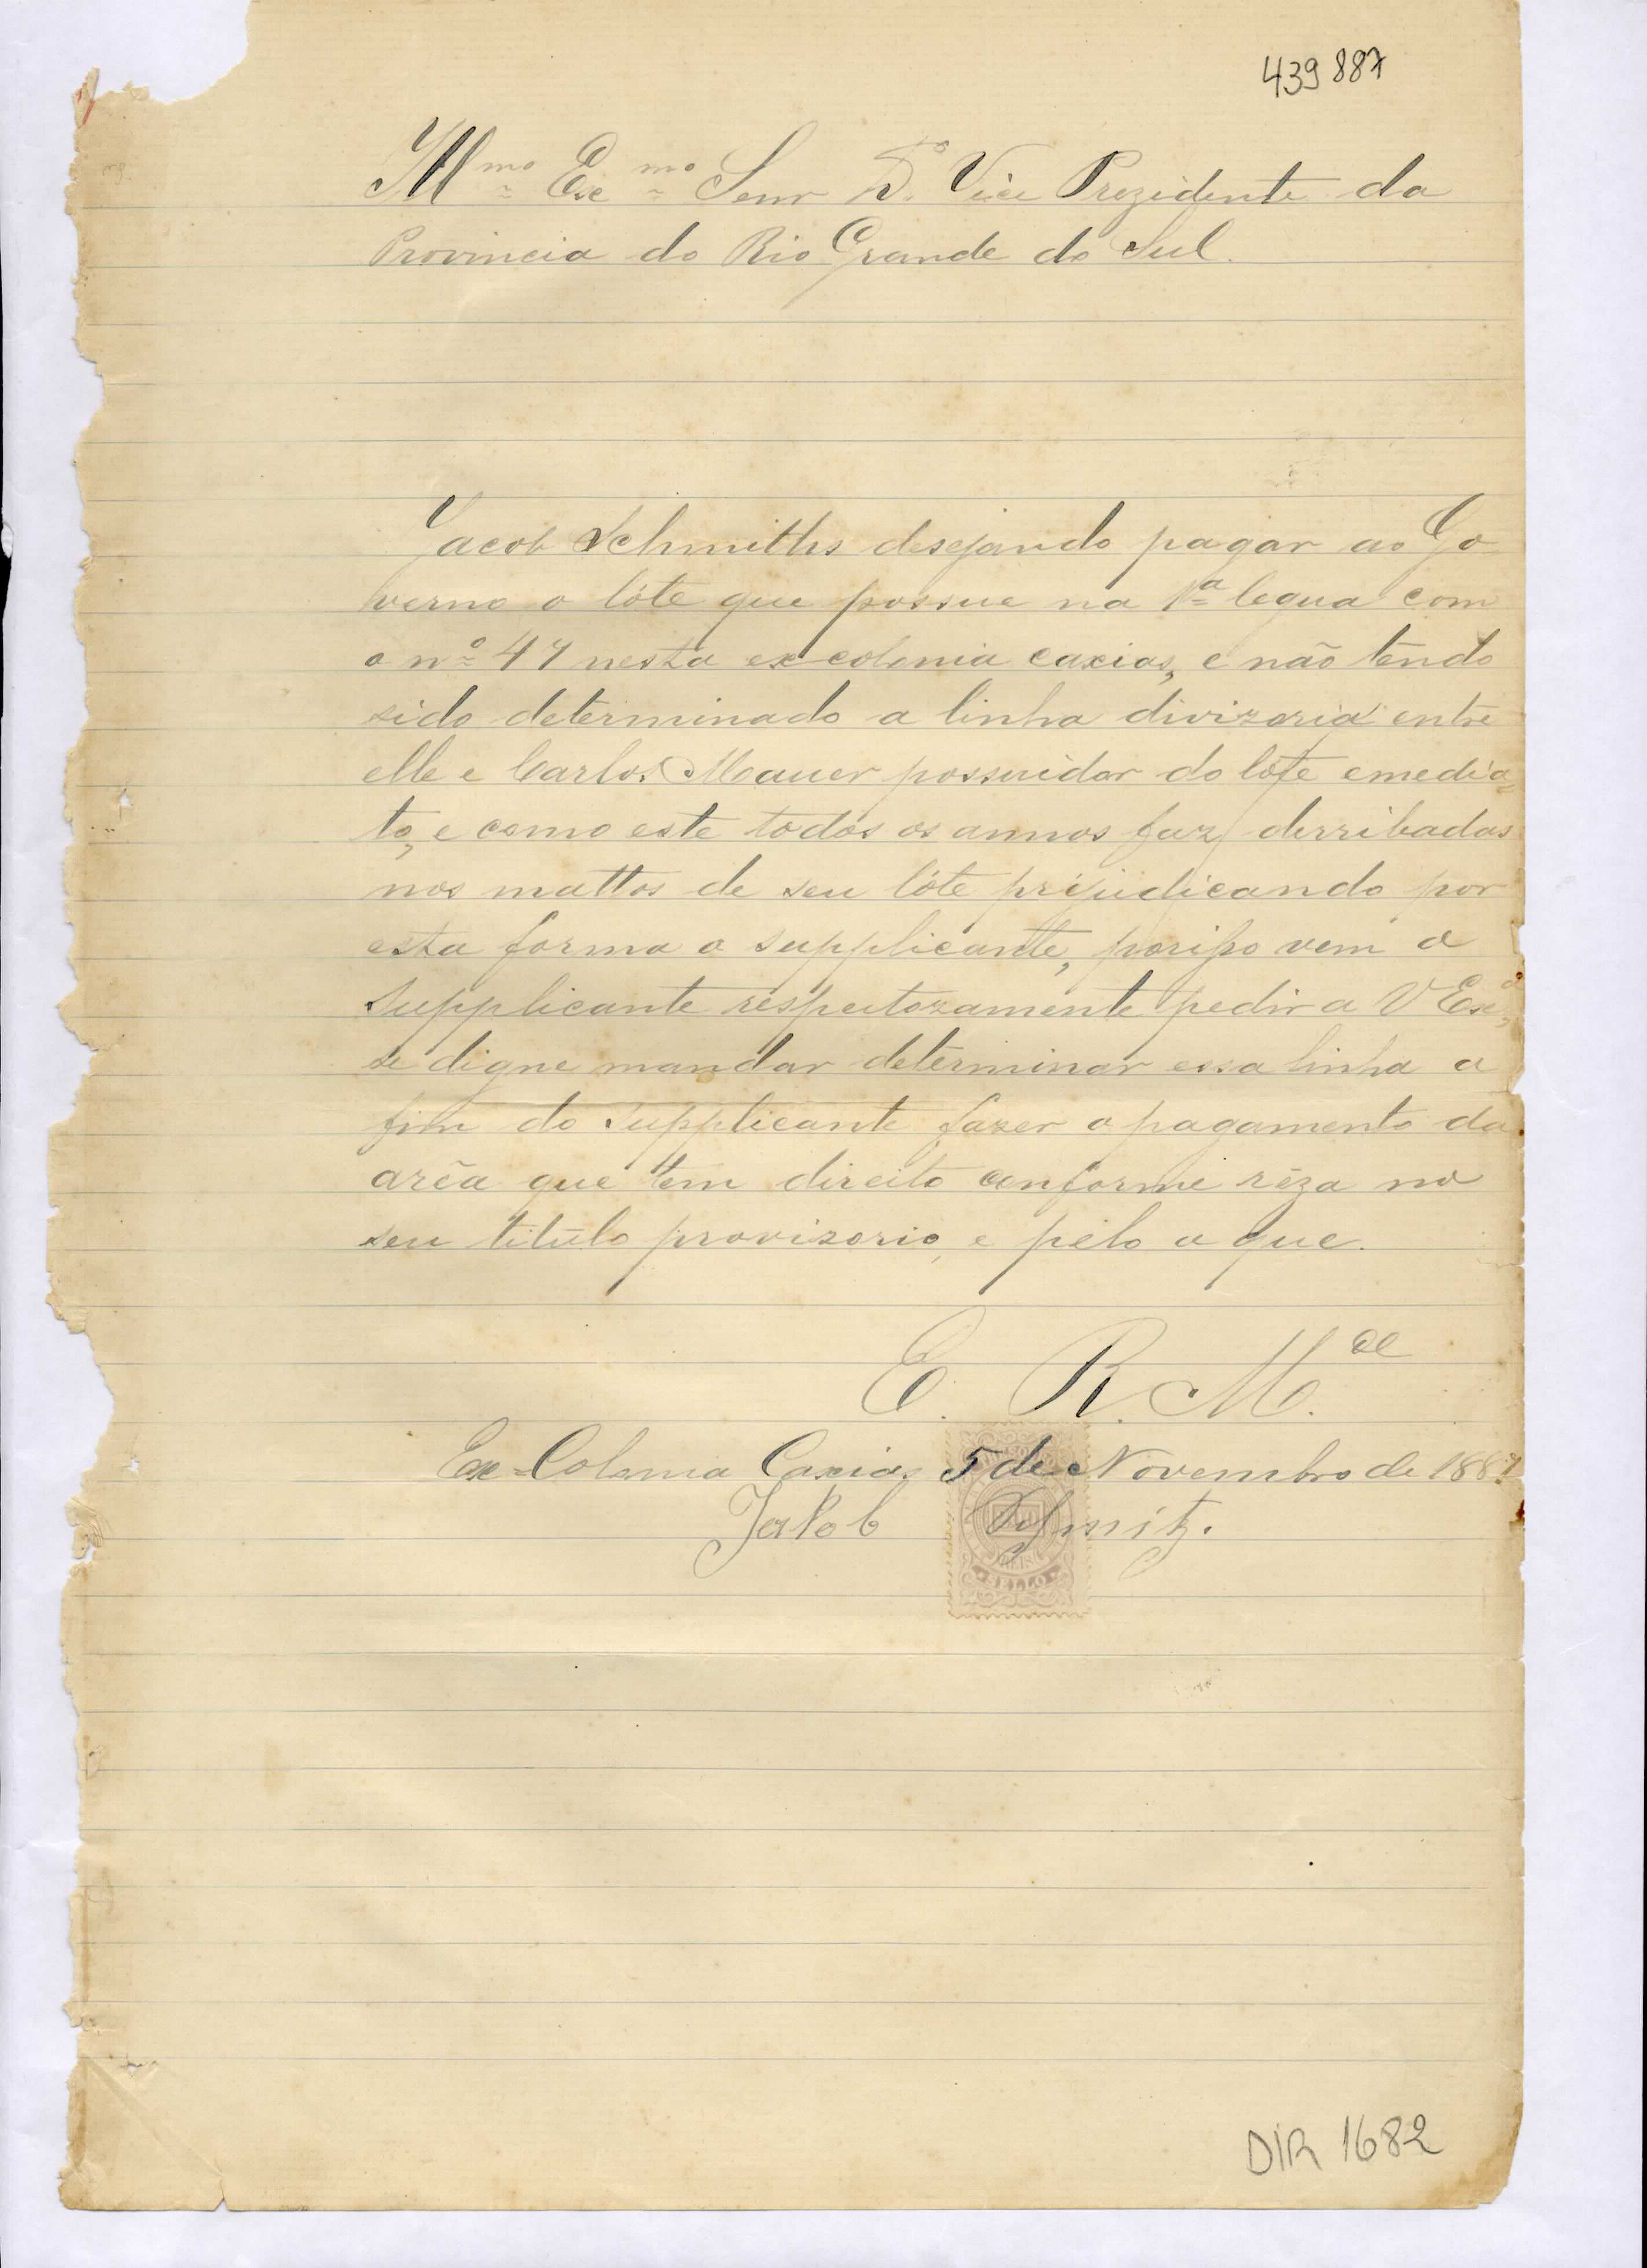 439887
Illmo Exmo Senr Dr Vice Prezidente da
Provincia do Rio Grande do Sul.
Jacob Schmiths desejando pagar ao Go
verno o lóte que possue na 1ª legua com
o nº 47 nesta ex colonia caxias, e não tendo
sido determinado a linha divizoria entre
elle e Carlos Mauer possuidor do lóte emedia=
to, e como este todos os annos faz derribadas
nos mattos de seu lóte prejudicando por
esta forma o supplicante, porisso vem o
supplicante respeitozamente pedir a V Exª
se digne mandar determinar essa linha a
fim do supplicante fazer o pagamento da
aréa que tem direito conforme réza no
seu titulo provizorio, e pelo o que.
E. R. M.ce
Ex-Colonia Caxias 5 de Novembro de 1887
Jakob Schmitz.
REIS
SELLO
DIR 1682